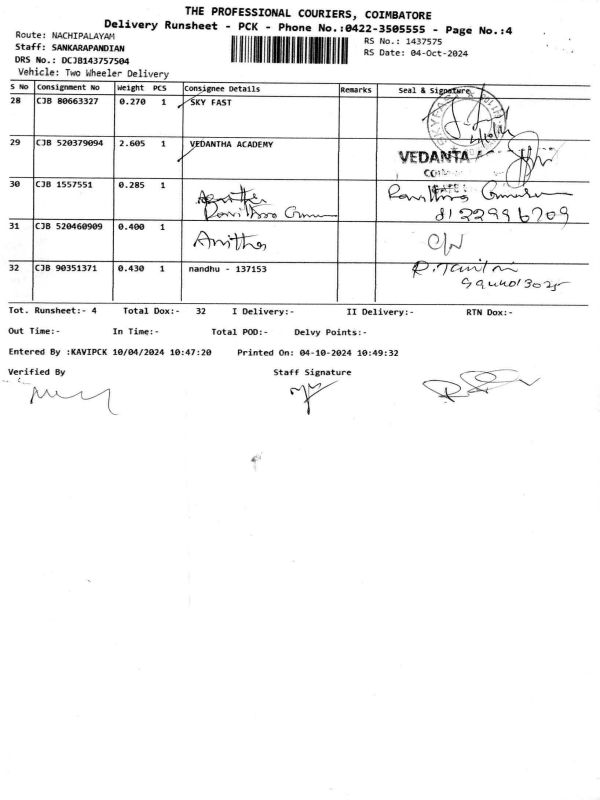 THE PROFESSIONAL COURIERS, COIMBATORE
Delivery Runsheet - PCK - Phone No.:0422-3505555 - Page No.:4
Route: NACHIPALAYAM
RS No.: 1437575
Staff: SANKARAPANDIAN
RS Date: 04-Oct-2024
DRS No.: DCJB143757504
Vehicle: Two Wheeler Delivery
S No Consignment No Weight PCS Consignee Details Remarks Seal & Signature
28 CJB 80663327 0.270 1 SKY FAST
29 CJB 520379094 2.605 1 VEDANTHA ACADEMY
VEDANTA
30 CJB 1557551 0.285 1
8122996709
31 CJB 520460909 0.400 1 Anitha
32 CJB 90351371 0.430 1 nandhu - 137153
Tot. Runsheet:- 4 Total Dox:- 32 I Delivery:- II Delivery:- RTN Dox:-
Out Time:- In Time:- Total POD:- Delvy Points:-
Entered By :KAVIPCK 10/04/2024 10:47:20 Printed On: 04-10-2024 10:49:32
Verified By Staff Signature